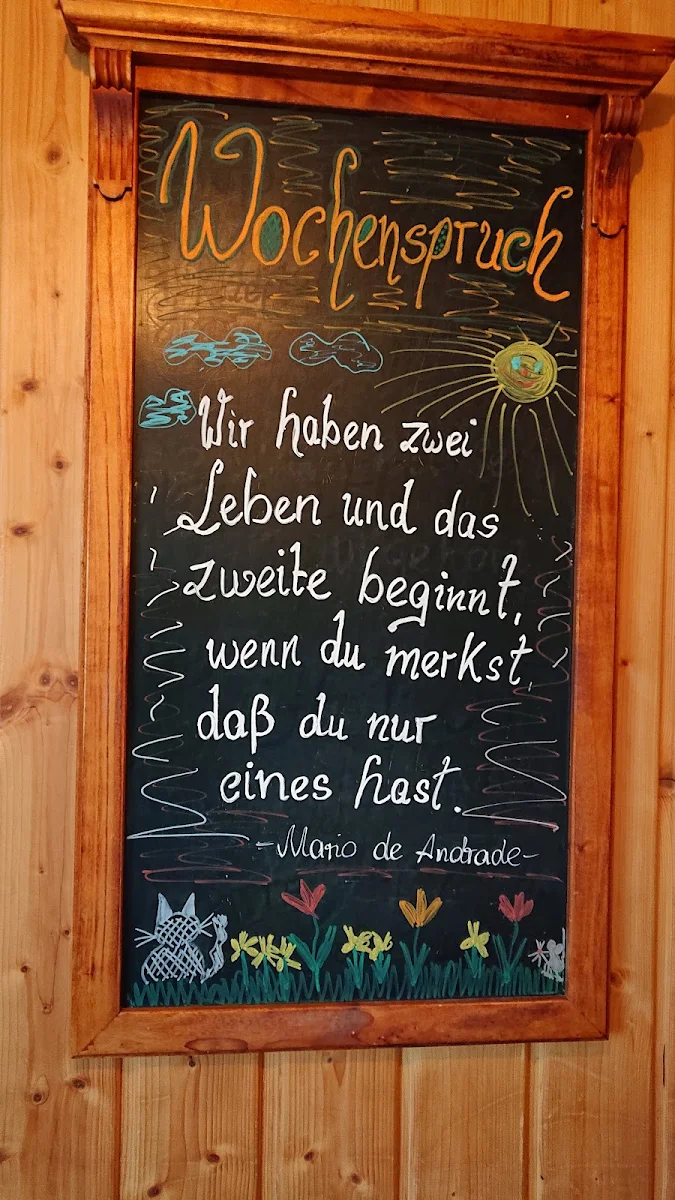 Wochenspruch
Wir haben zwei
Leben und das
zweite beginnt,
wenn du merkst,
daß du nur
eines hast.
-Mario de Andrade-